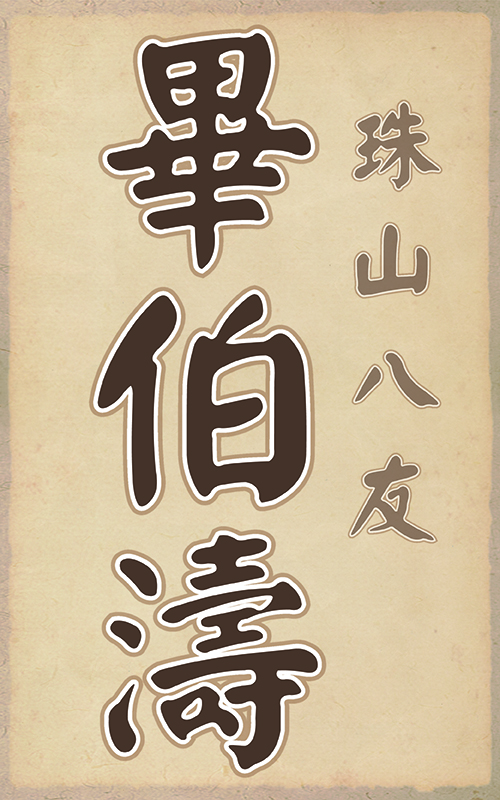 珠山八友
畢伯濤